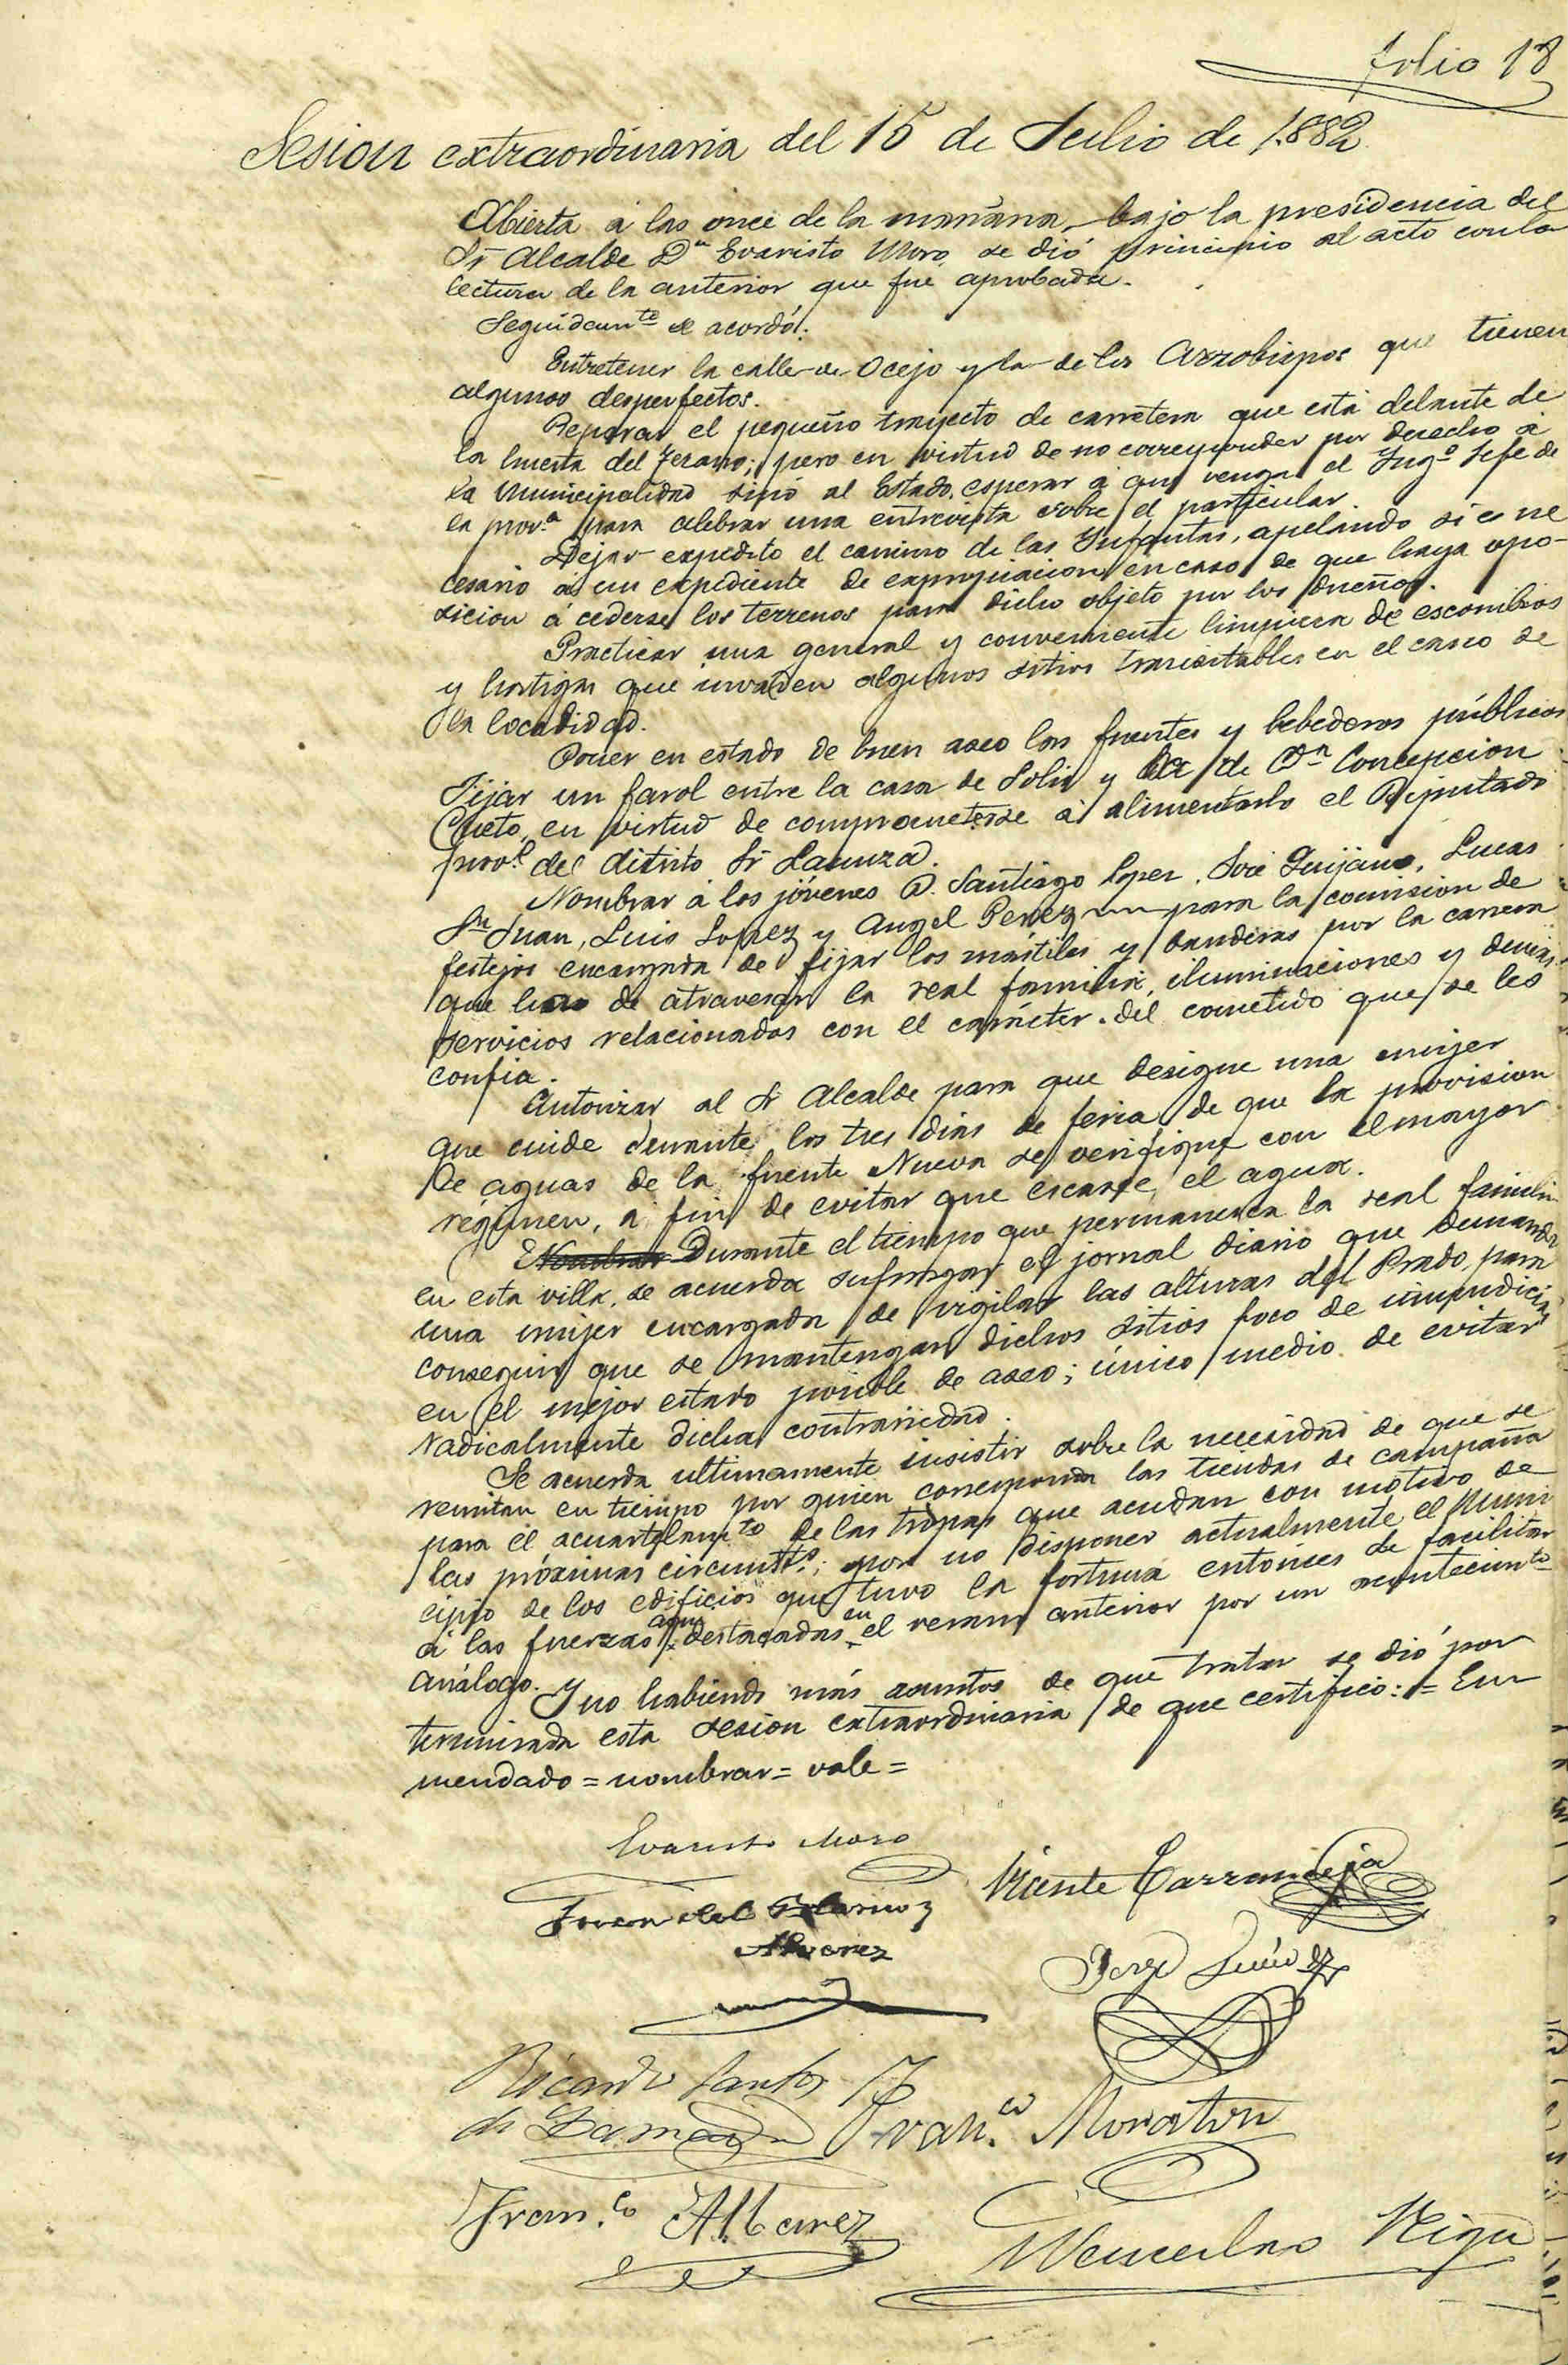 folio 18
Sesion extraordinaria del 15 de Julio de 1.882
Abierta á las once de la mañana, bajo la presidencia del
Sr Alcalde Dn Evaristo Moro, se dió principio al acto con la
lectura de la anterior que fué aprobada.
Seguidamte se acordó:
Entretener la calle de Ocejo y la de los Arzobispos que tienen
algunos desperfectos.
Reparar el pequeño trayecto de carretera que está delante de
la huerta del ; pero en virtud de no corresponder por derecho á
la Municipalidad sinó al Estado, esperar á que venga el Ingo Jefe de
la prov.a para celebrar una entrevista sobre el particular.
Dejar expedito el camino de las Infantas, apelando si es ne
cesario á un expediente de expropiacion en caso de que haya opo-
sicion á cederse los terrenos para dicho objeto por los dueños.
Practicar una general y conveniente limpieza de escombros
y hortigas que invaden algunos sitios transitables en el casco de
la localidad.
Poner en estado de buen aseo las fuentes y bebederos públicos
Fijar un farol entre la casa de Solis y la de Dn Concepcion
Cueto, en virtud de comprometerse á alimentarlo el Diputado
prov.l del distrito Sr Lanuza.
Nombrar á los jóvenes D. Santiago Lopez, José Guijano, Lucas
Sn Juan, Luis Lopez y Angel Perez para la comision de
festejos encargada de fijar los mástiles y banderas por la carrera
que ha de atravesar la real familia, iluminaciones y demás
servicios relacionados con el carácter del cometido que se les
confia.
Autorizar al Sr Alcalde para que designe una mujer
que cuide durante los tres dias de feria, de que la provision
de aguas de la fuente Nueva se verifique con el mayor
régimen, á fin de evitar que escasée el agua.
Nombrar Durante el tiempo que permanezca la real familia
en esta villa, se acuerda sufragar el jornal diario que demanda
una mujer encargada de vigilar las alturas del Prado, para
conseguir que se mantengan dichos sitios foco de inmundicias
en el mejor estado posible de aseo; único medio de evitar
radicalmente dicha contrariedad.
Se acuerda ultimamente insistir sobre la necesidad de que se
remitan en tiempo por quien corresponda las tiendas de campaña
para el acuartelamto de las tropas que acudan con motivo de
las próximas circunsts; por no disponer actualmente el Muni
cipio de los edificios que tuvo la fortuna entónces de facilitar
á las fuerzas aquí destacadas en el verano anterior por un acontecimto
análogo. Y no habiendo más asuntos de que tratar se dió por
terminada esta sesion extraordinaria de que certifico: = En
mendado = nombrar = vale =
Evaristo Moro
Vicente Tarrandeja
Juan del
Alvarez
Jorge
Ricardo Santos
de
Fran.co Moraton
Fran.co Albarez
Wenceslao